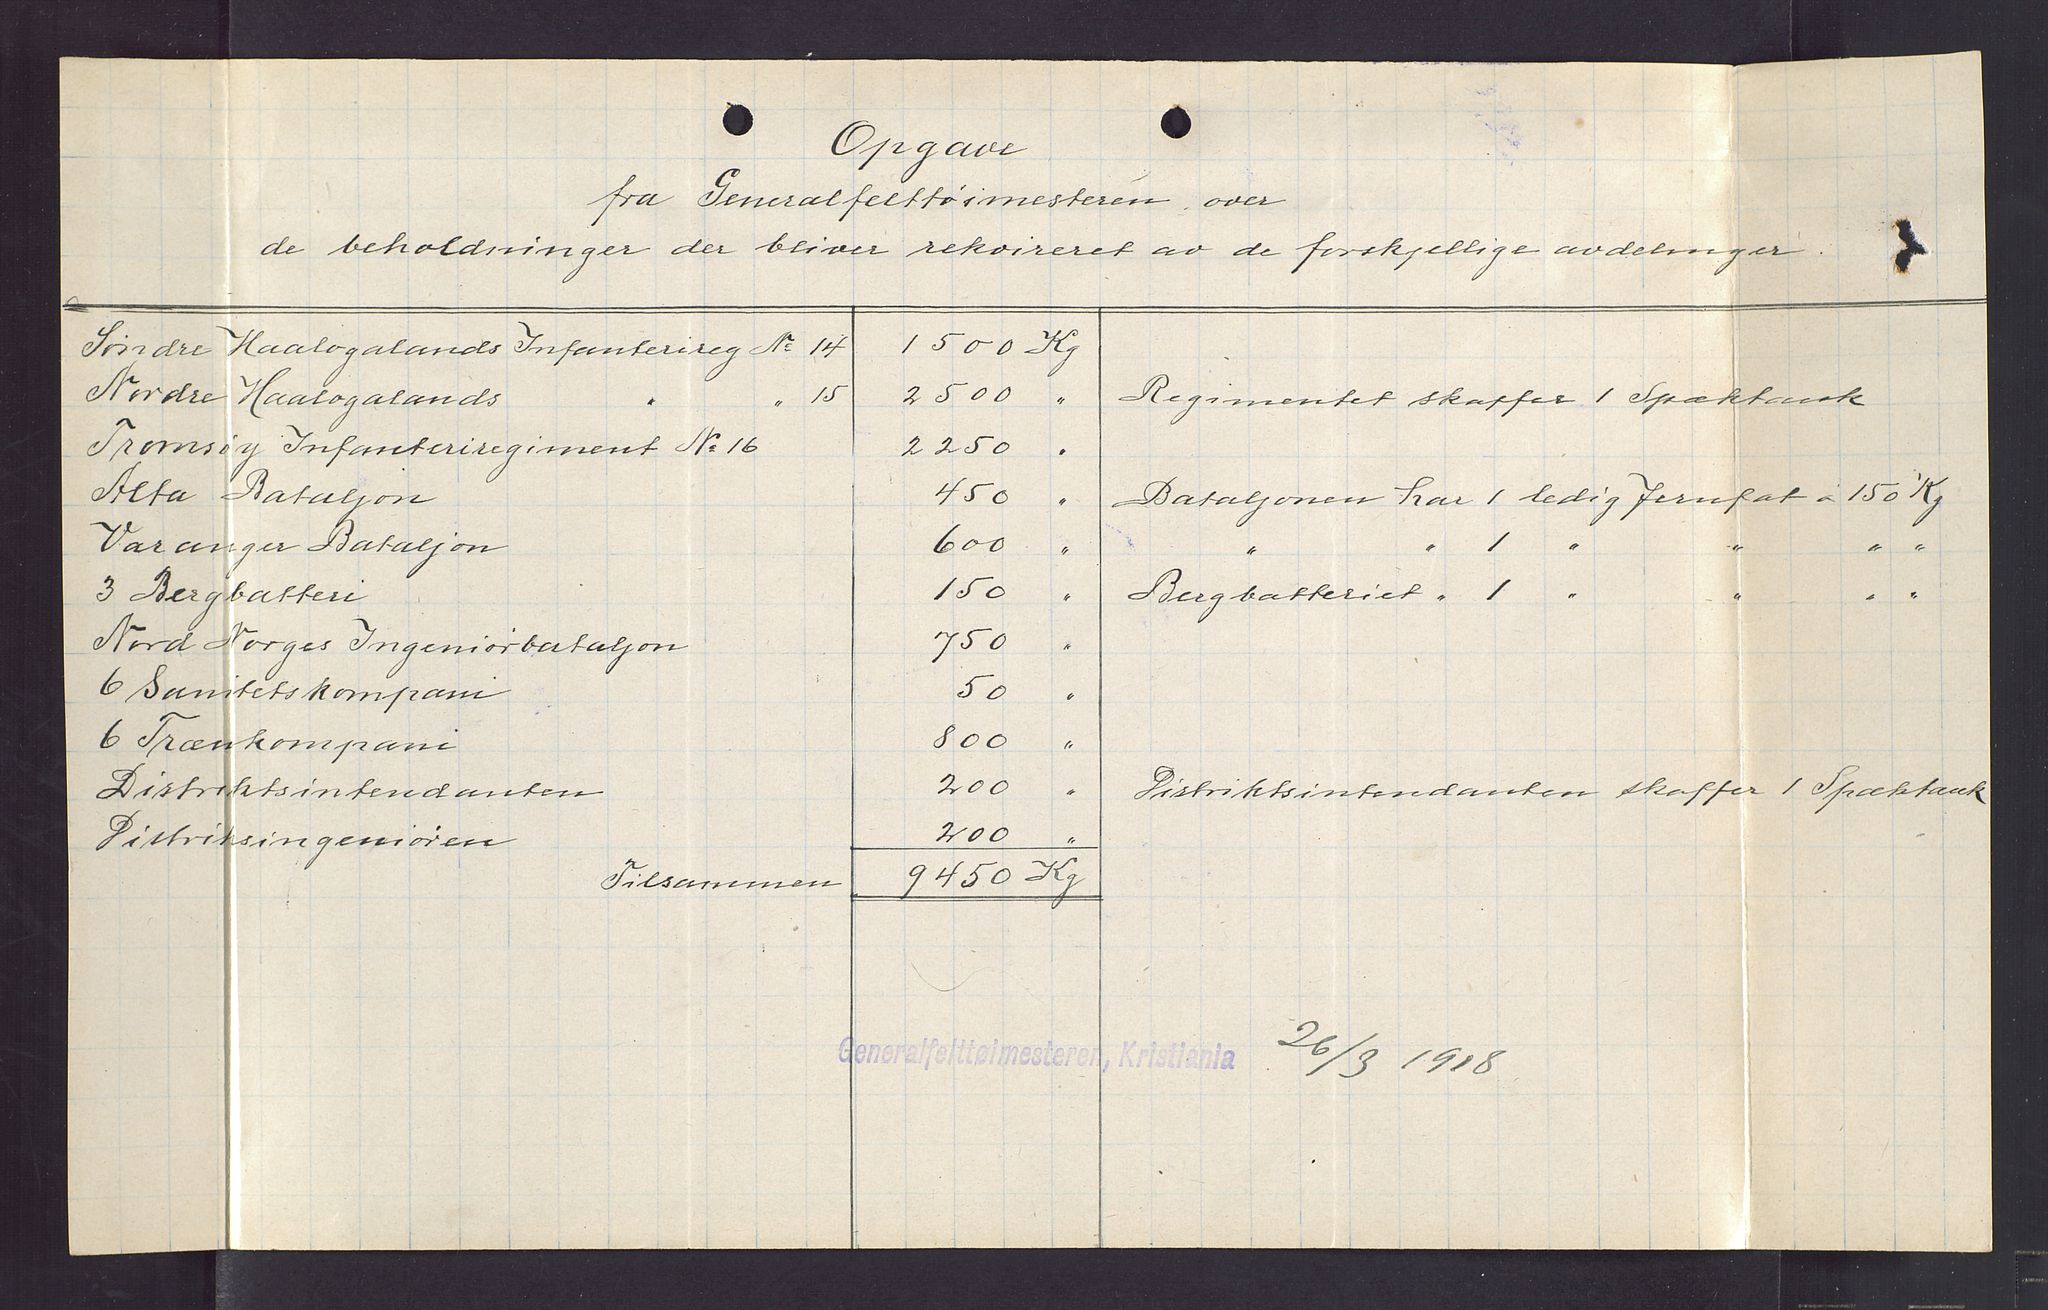 Opgave
fra Generalfelttøimesteren over
de beholdninger der bliver rekvireret av de forskjellige avdelinger.
Söndre Haalogalands Infanterireg No 14 1500 Kg
Nordre Haalogalands " " 15 2500 " Regimentet skaffer 1 Spæktank
Tromsöy Infanteriregiment No 16 2250 "
Alta Bataljon 450 " Bataljonen har 1 ledig Jernfat a 150 Kg
Varanger Bataljon 600 " " " 1 " " " "
3 Bergbatteri 150 " Bergbatteriet " 1 " " " "
Nord Norges Ingeniörbataljon 750 "
6 Sanitetskompani 50 "
6 Trænkompani 800 "
Distriktsintendanten 200 " Distriktsintendanten skaffer 1 Spæktank
Distriksingeniören 200 "
Tilsammen 9450 Kg
Generalfelttøimesteren, Kristiania 26/3 1918